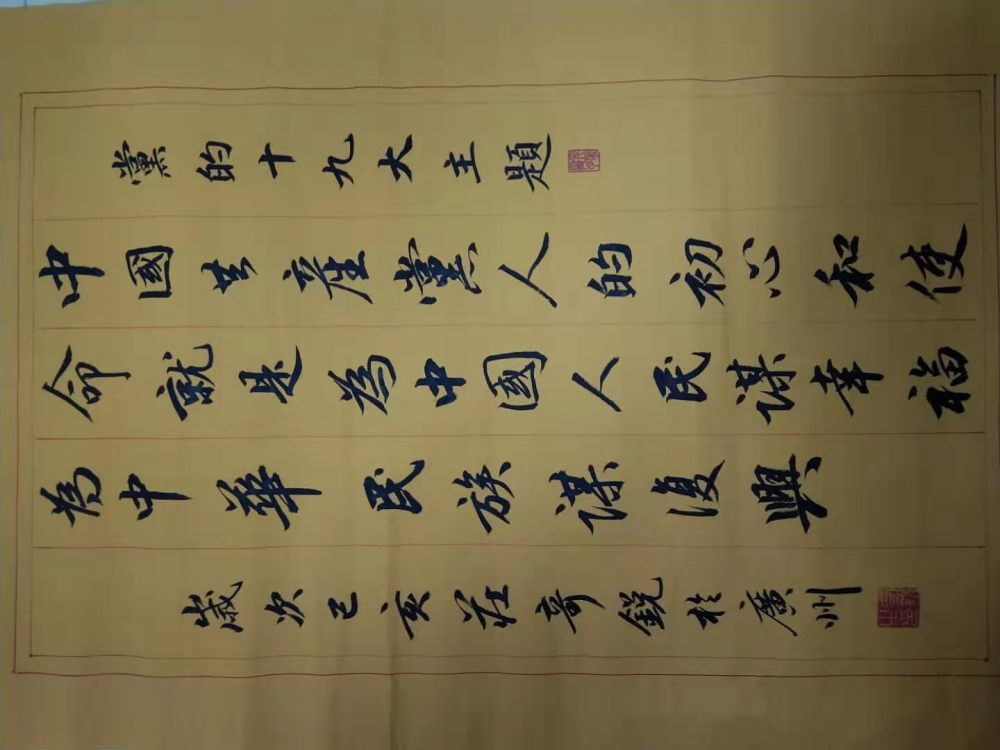 黨的十九大主題
中國共產黨人的初心和使
命就是為中國人民謀幸福
為中華民族謀復興
歲次己亥莊奇銳於廣州